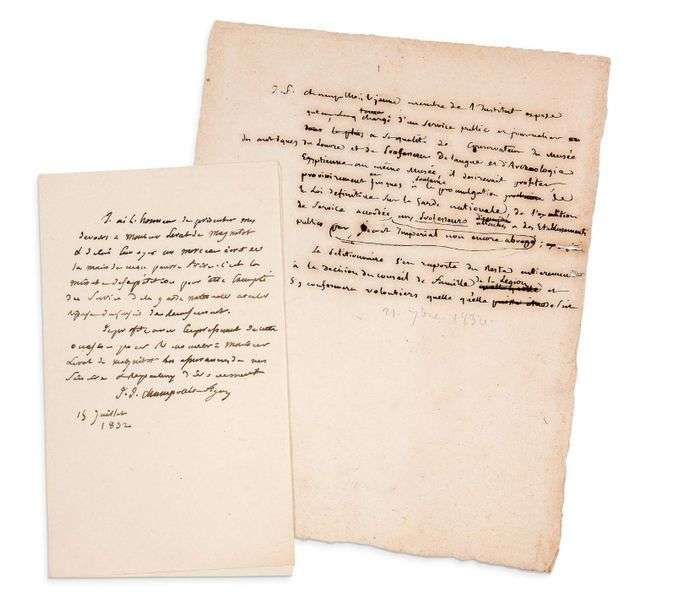 J'ai l'honneur de présenter mes
devoirs à Monsieur de magnitot
et de lui envoyer un morceau écrit de
la main de mon pauvre frère : c'est la
minute de sa pétition pour être exempté
du Service de la garde nationale
Je profite avec empressement de cette
occasion pour Renouveler à monsieur
de magnitot les assurances de mes
J. J. Champollion-figeac
15 Juillet
1832
J. F. Champollion le jeune membre de l'Institut expose
que chargé d'un Service public et journalier
en sa qualité de Conservateur du Musée
des antiques du Louvre et de Professeur de langue et d'Archéologie
Égyptienne au même Musée, il désirerait profiter
provisoirement jusques à la promulgation de
la Loi définitive sur la Garde nationale, de l'exemption
de Service accordée aux Professeurs attachés à des Établissements
publics par Décret Impérial non encore abrogé ;
Le pétitionnaire s'en rapporte du Reste entièrement
à la décision du conseil de famille de la Légion et
s'y conformera volontiers quelle qu'elle soit